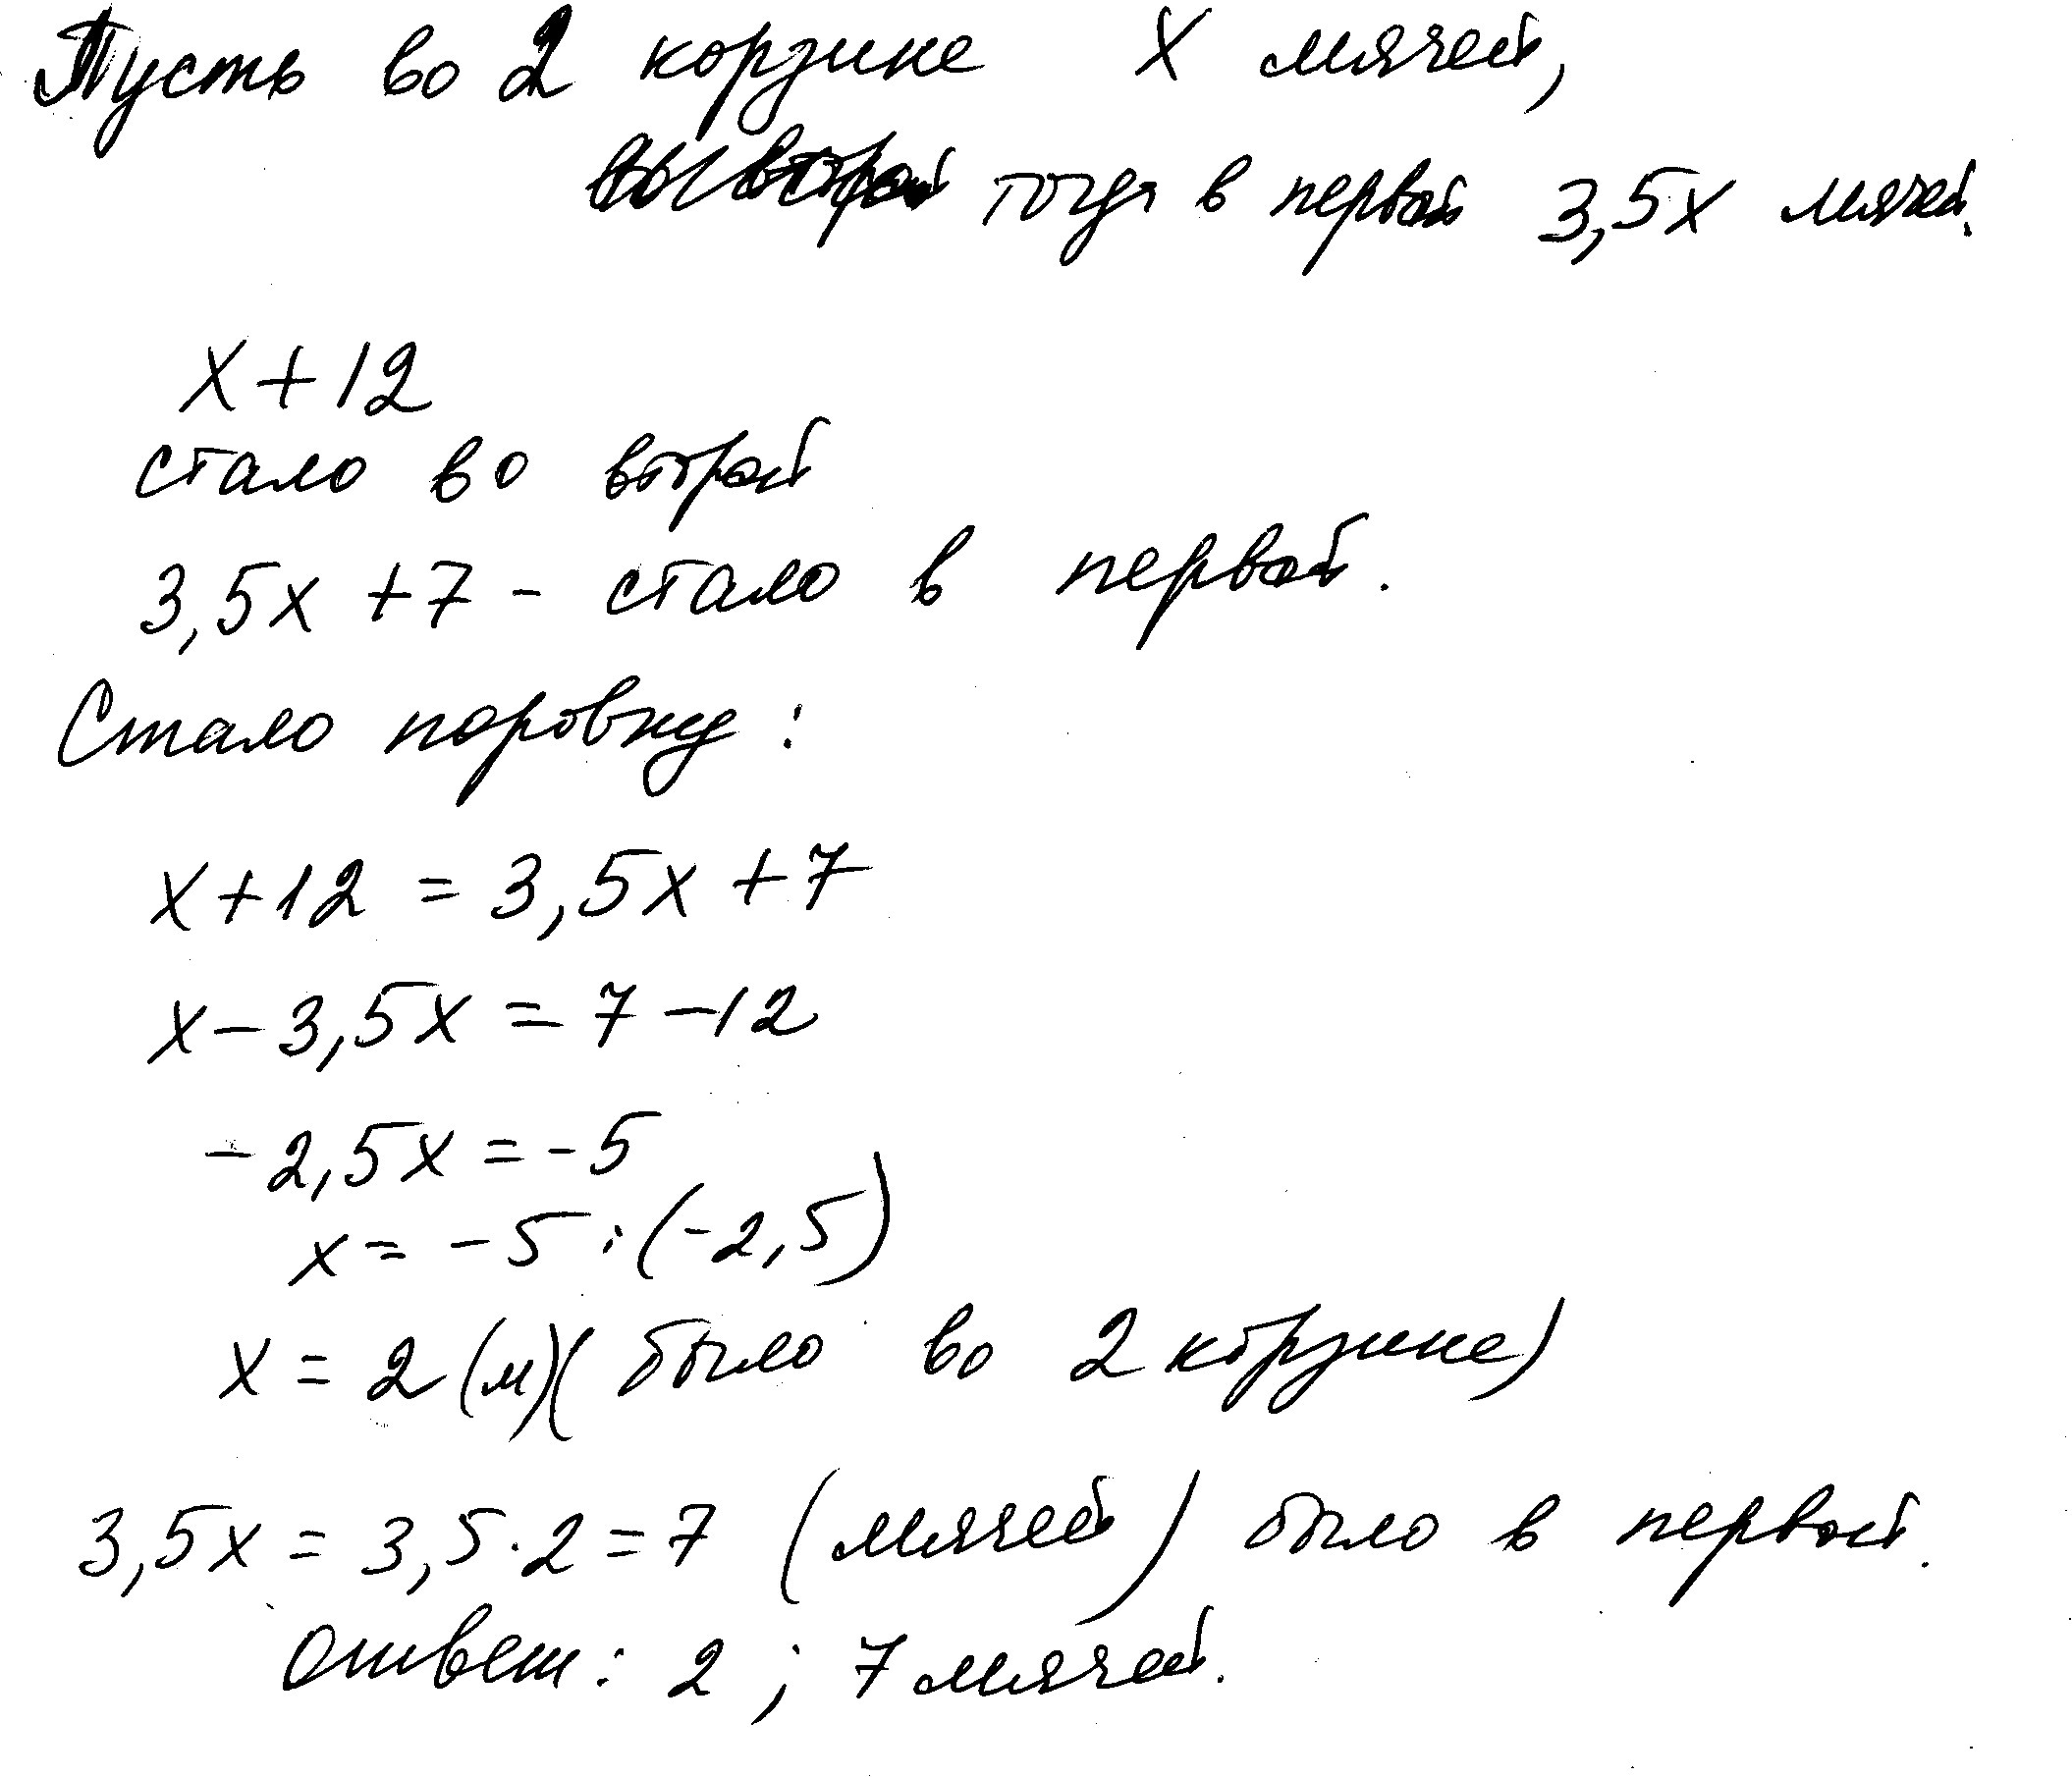 Пусть во 2 корзине x мячей,
тогда в первой 3,5x мячей.
x+12
стало во второй
3,5x +7 - стало в первой.
Стало поровну:
x+12 = 3,5x+7
x-3,5x = 7-12
-2,5x = -5
x = -5 : (-2,5)
x = 2 (м)(было во 2 корзине)
3,5x = 3,5·2=7 (мячей) было в первой.
Ответ: 2 ; 7 мячей.